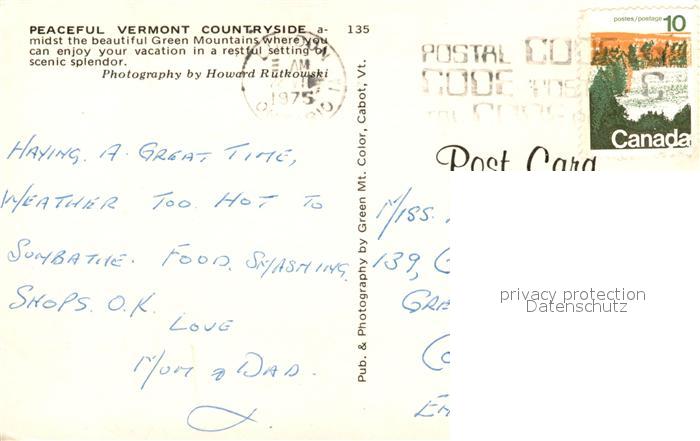 PEACEFUL VERMONT COUNTRYSIDE a-
midst the beautiful Green Mountains where you
can enjoy your vacation in a restful setting of
scenic splendor.
Photography by Howard Rutkowski
135
AM
1975
ONTARIO
POSTAL CODE
CODE POSTAL
CODE
postes/postage 10
Canada
Post Card
Pub. & Photography by Green Mt. Color, Cabot, Vt.
HAVING A GREAT TIME,
WEATHER TOO HOT TO
SUNBATHE. FOOD. SMASHING,
SHOPS. O.K.
LOVE
MUM & DAD.
MISS.
139,
privacy protection
Datenschutz